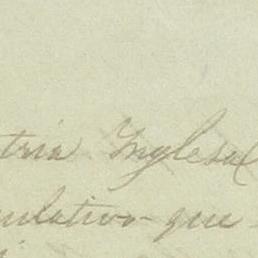 tria Inglesa(
mulativo que